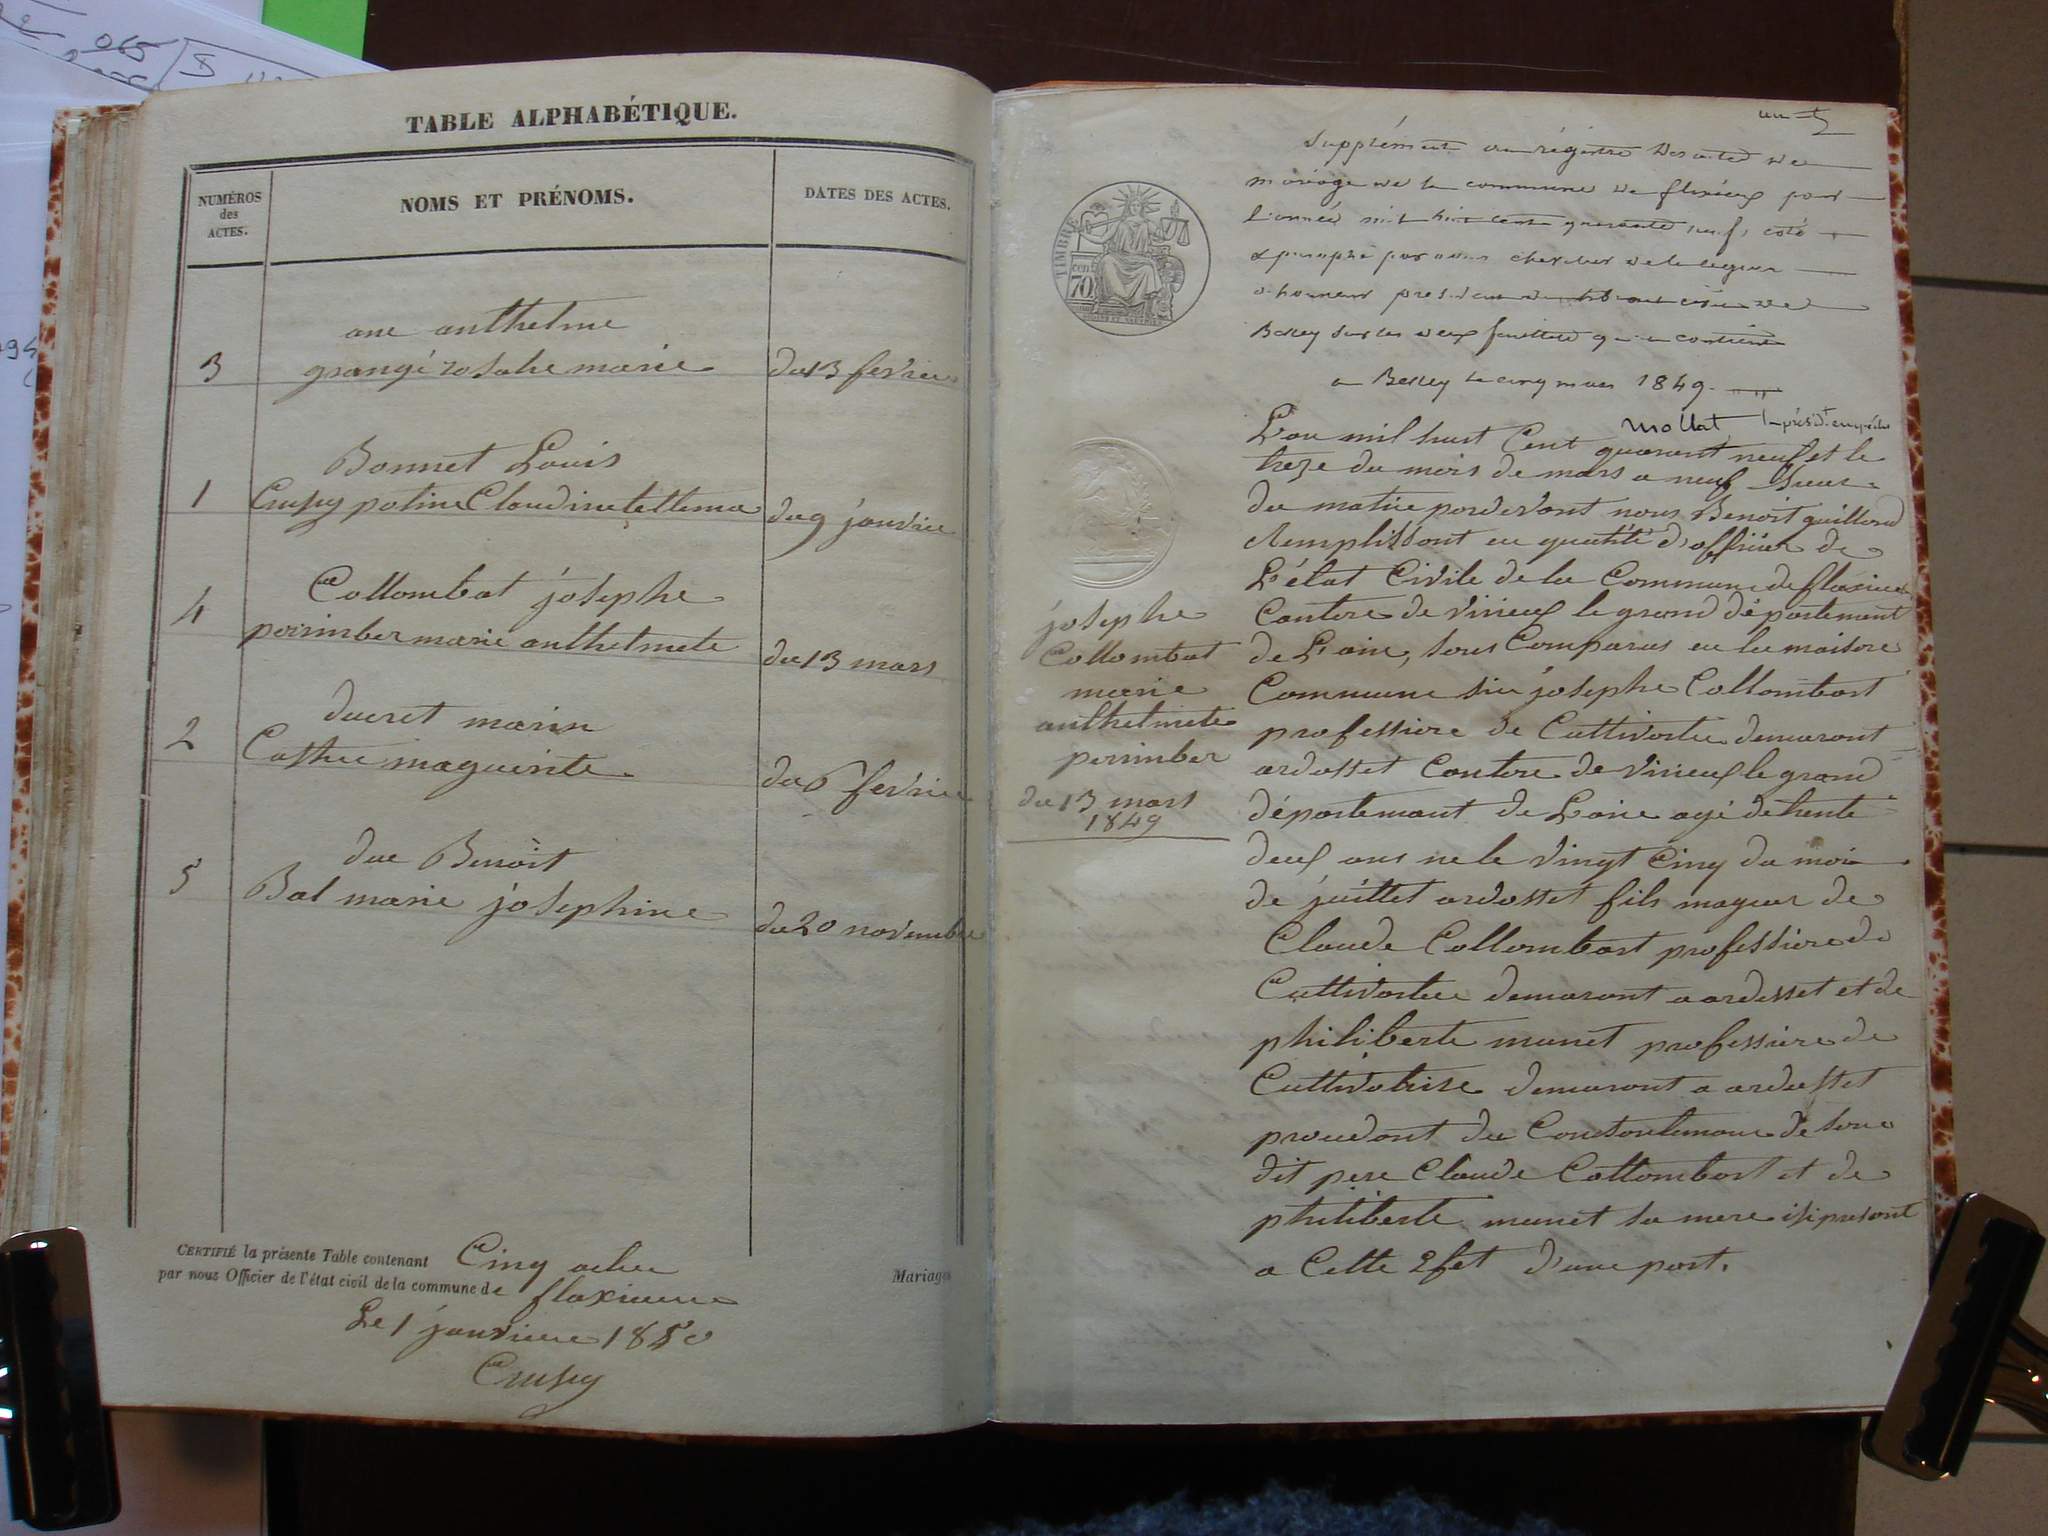 TABLE ALPHABÉTIQUE.
NUMÉROS
des
ACTES.
NOMS ET PRÉNOMS.
DATES DES ACTES.
ane anthelme
3 grangé rosalie marie du 13 fevrier
Bonnet Louis
1 Crussy poline Claudine du 9 janvier
Collombat josephe
4 perrimber marie anthelmete du 13 mars
ducret marin
2 du 6 fevrier
duc Benoît
5 Bal marie josephine du 20 novembre
CERTIFIÉ la présente Table contenant Cinq actes
par nous Officier de l'état civil de la commune de flaxieure
Mariages
Le 1 janvieure 1850
Crussy
Supplément au régistre des actes de
mariage de la commune de flaxieux pour
l'année mil huit cent quarante neuf, coté
& paraphé par nous chevalier de la légion
d'honneur président du tribunal civil de
Belley sur les deux feuillets qu'il contient
a Belley le cinq mars 1849.
Mollat
TIMBRE
70
L'an mil huit Cent quarant neuf et le
treze du mois de mars a neuf heure
du matin pardevant nous Benoit guilland
Remplissant en qualité d'officier de
L'état Civile de la Commune de flaxieux
Cantore de virieux le grand département
de L'ain, sons Comparus en la maisore
Commune sieu josephe Collombart
professiore de Cultivateu demeurant
ardosset Cantore de virieux le grand
département de L'aine agé de trente
deux ans ne le vingt Cinq du moi
de juillet ardosset fils mageur de
Claude Collombart professiore de
Cultivateu demeurant a ardosset et de
philiberte munet professiore de
Cultivatrise demeurant a ardosset
du de sone
dit pere Claude Collombart et de
philiberte munet sa mere isi present
a Cette d'une part.
josephe
Collombat
marie
anthelmete
perrimber
du 13 mars
1849